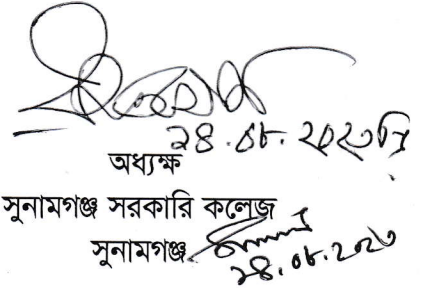 ২৪.০৮.২০২৩খ্রি
অধ্যক্ষ
সুনামগঞ্জ সরকারি কলেজ
সুনামগঞ্জ
২৪.০৮.২০২৩